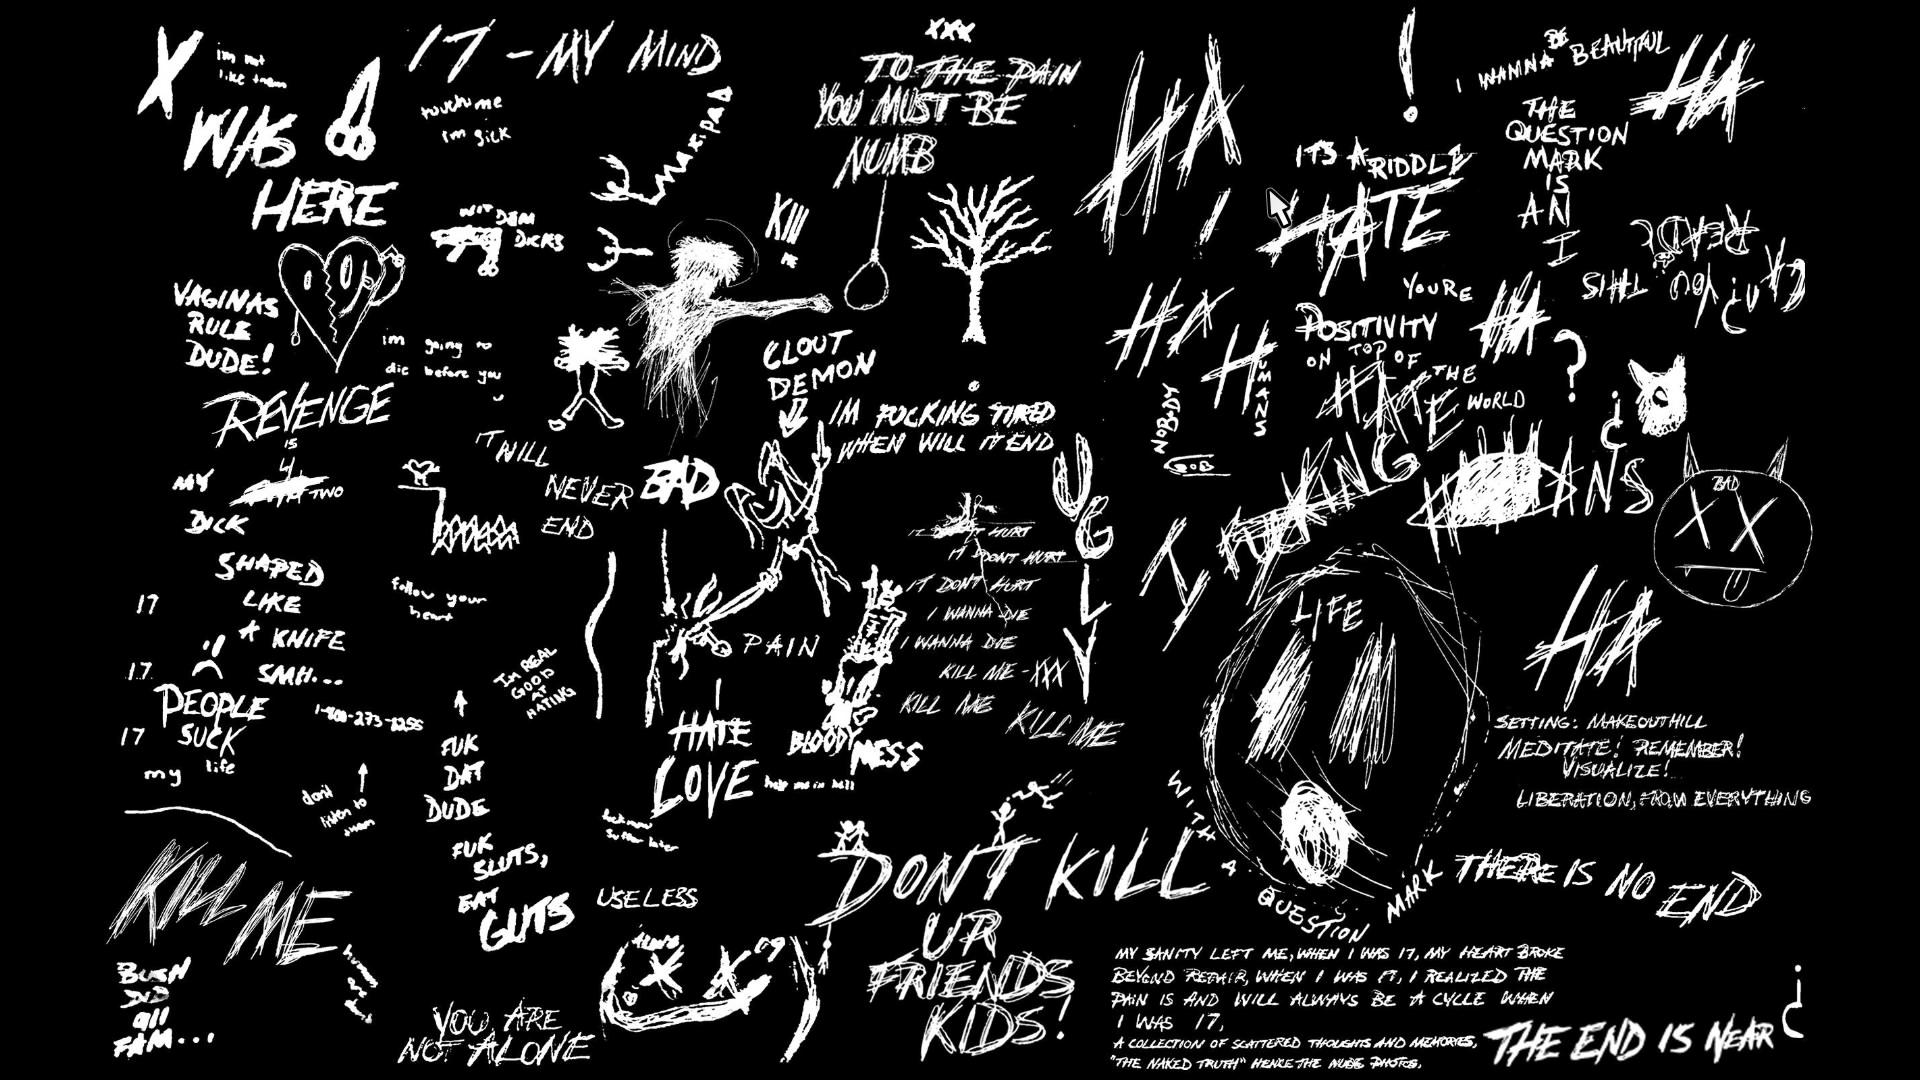 im not
like them
X
WAS
HERE
17 - MY MIND
touch me
im sick
WIT DEM
DICKS
VAGINAS
RULE
DUDE!
im going to
die before you
REVENGE
IS
MY
TWO
DICK
SHAPED
LIKE
A KNIFE
SMH...
17
17
17
PEOPLE
SUCK
my life
1-800-273-8255
follow your
heart
IT WILL
NEVER
END
BAD
IM REAL
GOOD
AT
HATING
don't
listen to
them
FUK
DAT
DUDE
FUK
SLUTS,
EAT
GUTS
KILL ME
BURN
DID
all
FAM...
YOU ARE
NOT ALONE
USELESS
suffer later
XXX
TO THE PAIN
YOU MUST BE
NUMB
KILL
ME
CLOUT
DEMON
IM FUCKING TIRED
WHEN WILL IT END
UGLY
PAIN
I
HATE
LOVE
BLOODY
MESS
help me in hell
IT HURT
IT DONT HURT
IT DONT HURT
I WANNA DIE
I WANNA DIE
KILL ME - XXX
KILL ME
KILL ME
DONT KILL
UR
FRIENDS
KIDS!
HA
!
I WANNA BE BEAUTIFUL
HA
THE
QUESTION
MARK
IS
AN
I
ITS A RIDDLE
HATE
CAN YOU
READ
THIS
?
YOURE
HA
POSITIVITY
ON TOP OF
THE
WORLD
HA
HATE
HUMANS
NOBODY
?
¿
I FUCKING HATE HUMANS
BAD
XX
LIFE
HA
SETTING: MAKEOUTHILL
MEDITATE! REMEMBER!
VISUALIZE!
LIBERATION, FROM EVERYTHING
WITH A QUESTION MARK
THERE IS NO END
MY SANITY LEFT ME, WHEN I WAS 17, MY HEART BROKE
BEYOND REPAIR, WHEN I WAS 17, I REALIZED THE
PAIN IS AND WILL ALWAYS BE A CYCLE WHEN
I WAS 17,
A COLLECTION OF SCATTERED THOUGHTS AND MEMORIES,
"THE NAKED TRUTH" HENCE THE NUDE PHOTOS.
THE END IS NEAR
¿